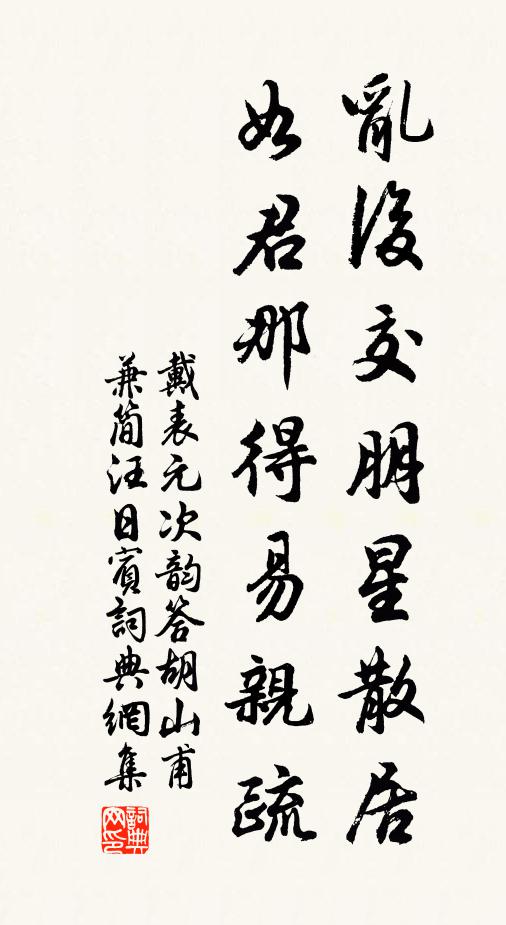 亂後交朋星散居
如君那得易親疏
戴表元次韵答胡山甫
兼简汪日賓詞典網集
詞典
网印